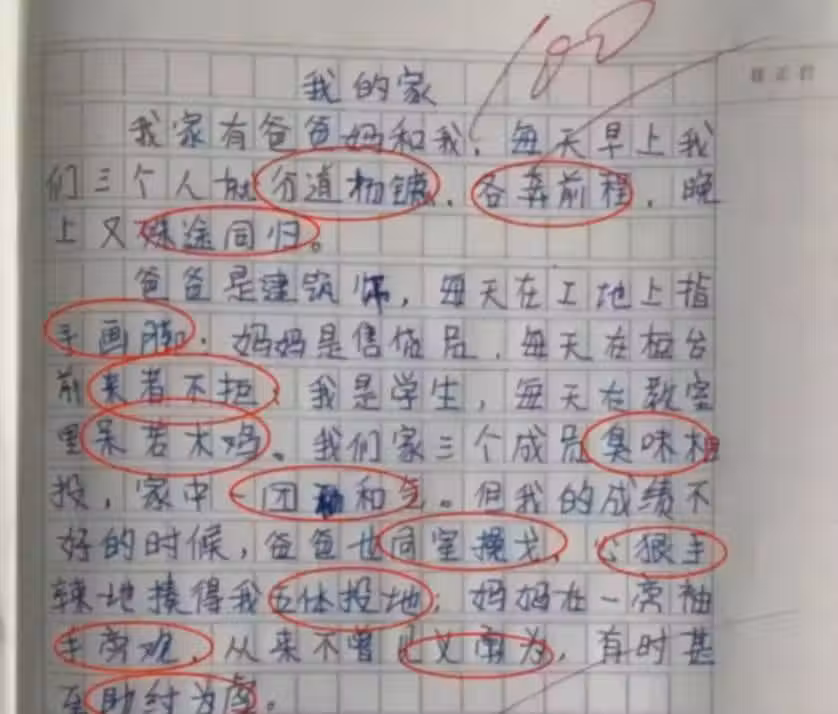 100
我的家
我家有爸爸妈和我，每天早上我
们三个人就分道扬镳，各奔前程，晚
上又殊途同归。
爸爸是建筑师，每天在工地上指
手画脚；妈妈是售货员，每天在柜台
前来者不拒；我是学生，每天在教室
里呆若木鸡。我们家三个成员臭味相
投，家中一团和气。但我的成绩不
好的时候，爸爸也同室操戈，心狠手
辣地揍得我五体投地；妈妈在一旁袖
手旁观，从来不曾见义勇为，有时甚
至助纣为虐。